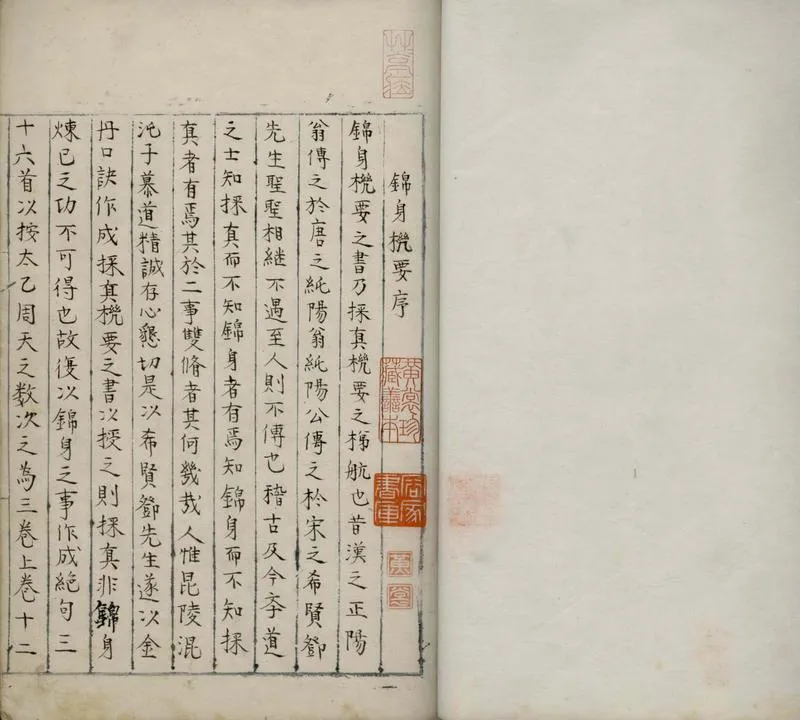 錦身機要序
錦身機要之書乃採真機要之梯航也昔漢之正陽
翁傳之於唐之純陽翁純陽公傳之於宋之希賢鄧
先生聖聖相繼不遇至人則不傳也稽古及今斈道
之士知採真而不知錦身者有焉知錦身而不知採
真者有焉其於二事雙脩者其何幾哉人惟昆陵混
沌子慕道精誠存心懇切是以希賢鄧先生遂以金
丹口訣作成採真機要之書以授之則採真非錦身
煉己之功不可得也故復以錦身之事作成絕句三
十六首以按太乙周天之数次之為三卷上卷十二
黃裳珍藏善本
容家書庫
黃裳